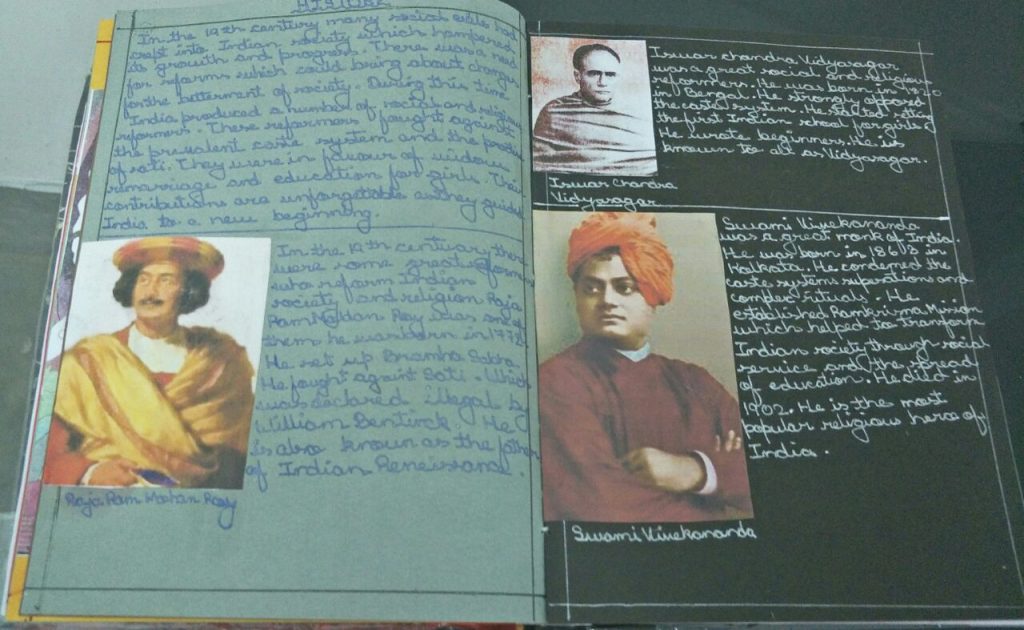 HISTORY
In the 19th century many social evils had
crept into Indian society which hampered
its growth and progress. There was a need
for reforms which could bring about changes
for the betterment of society. During this time
India produced a number of social and religious
reformers. These reformers fought against
the prevalent caste system and the practice
of sati. They were in favour of widow
remarriage and education for girls. Their
contributions are unforgetable as they guided
India to a new beginning.
In the 19th century there
were some great reformers
who reform Indian
society and religion Raja
Ram Mohan Roy was one of
them he was born in 1772.
He set up Bramha Sabha.
He fought against Sati. Which
was declared illegal by
William Bentinck. He
is also known as the father
of Indian Reneissance.
Raja Ram Mohan Roy
Iswar Chandra Vidyasagar
was a great social and religious
reformers. He was born in 1820
in Bengal. He strongly opposed
the caste system. He started setting
the first Indian school for girls
He wrote beginners. He is
known to all as Vidyasagar.
Iswar Chandra
Vidyasagar
Swami Vivekananda
was a great monk of India.
He was born in 1863 in
Kolkata. He condemed the
caste systems superations and
complex rituals. He
established Ramkrisna Mission
which helped to Transform
Indian society through social
service and the spread
of education. He died in
1902. He is the most
popular religious hero of
India.
Swami Vivekananda